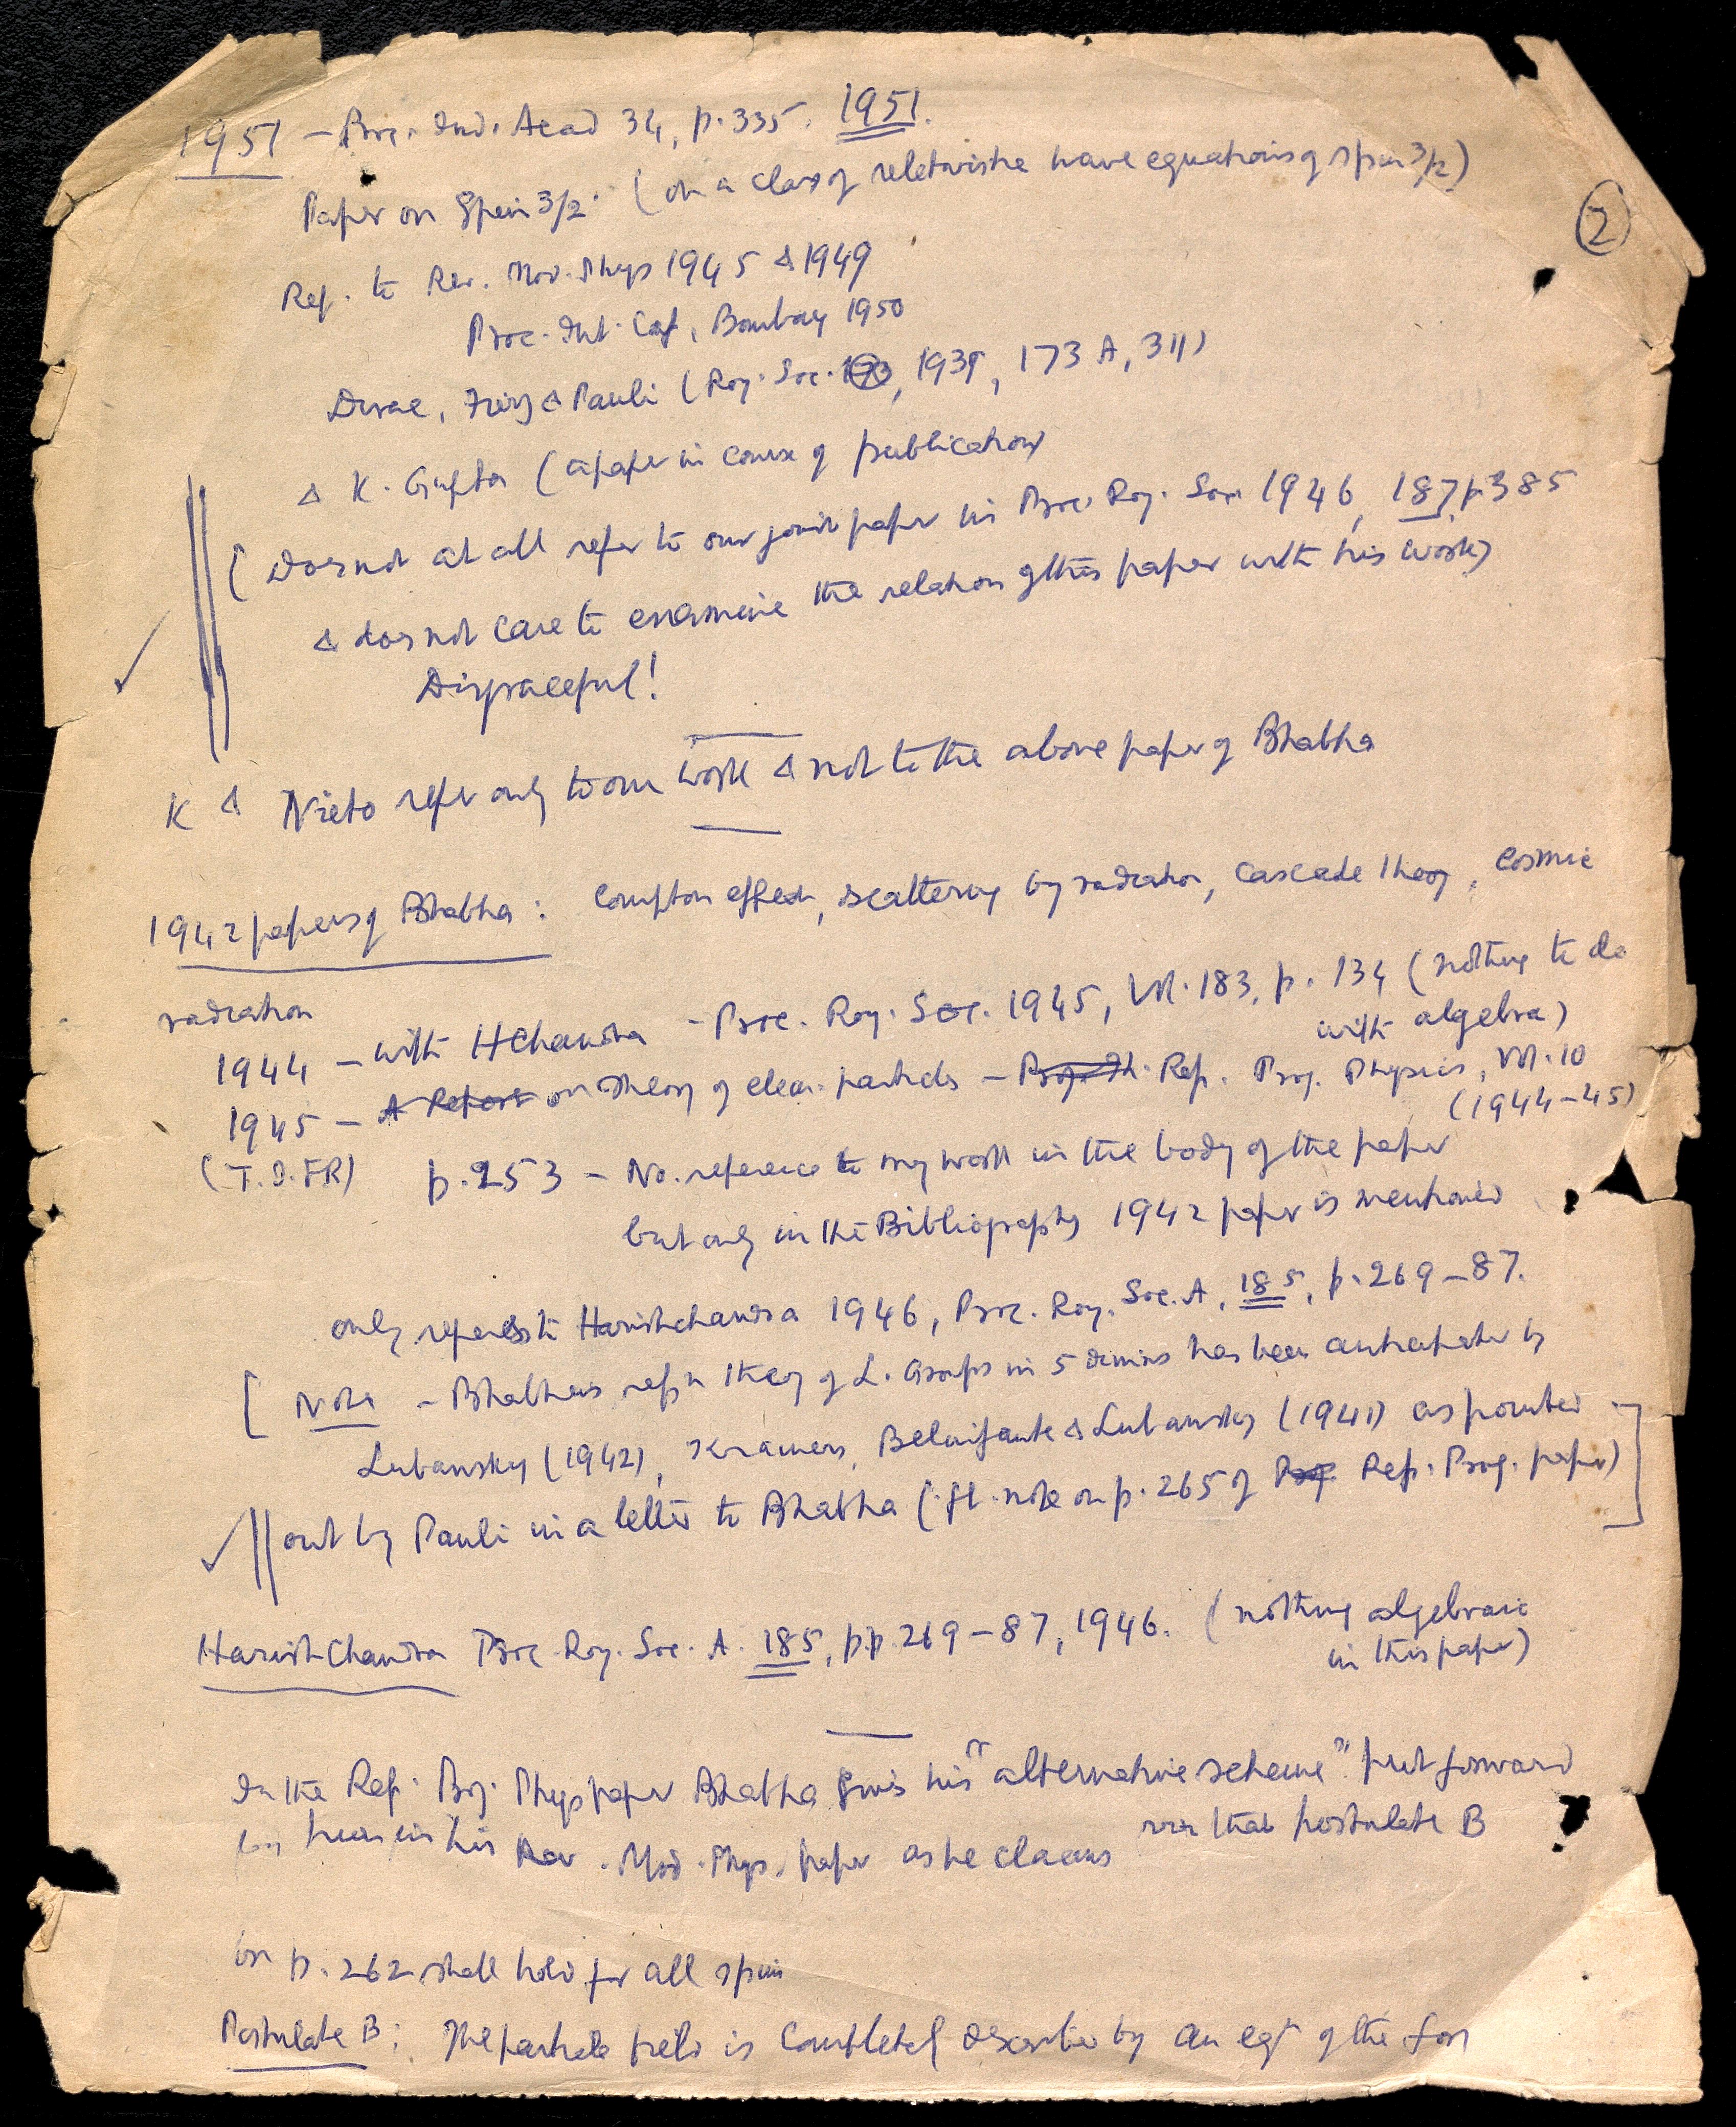 1951 – Proc. Ind. Acad 34, p. 335. 1951.
Paper on Spin 3/2. (on a class of relativistic wave equations of spin 3/2)
2
Ref. to Rev. Mod. Phys 1945 & 1949
Proc. Int. Conf, Bombay 1950
Dirac, Fierz & Pauli (Roy. Soc. , 1939, 173 A, 311)
& K. Gupta (a paper in course of publication)
( Does not at all refer to our joint paper in Proc. Roy. Soc. 1946, 187, p. 385
& does not care to examine the relation of this paper with his work)
Disgraceful!
K & Nieto refer only to our work & not to the above paper of Bhabha
1942 papers of Bhabha: Compton effect, scattering by radiation, cascade theory, cosmic
radiation
1944 – with HChandra – Proc. Roy. Soc. 1945, Vol. 183, p. 134 (nothing to do
with algebra)
1945 – A Report on Theory of elem. particles – Rep. Prog. Physics, Vol. 10
(1944–45)
(T.I.FR) p. 253 – No. reference to my work in the body of the paper
but only in the Bibliography 1942 paper is mentioned
only refers to Harishchandra 1946, Proc. Roy. Soc. A, 185, p. 269–87.
[ Note – Bhabha's repn theory of L. Groups in 5 dimns has been anticipated by
Lubansky (1942), Kramers, Belinfante & Lubansky (1941) as pointed
out by Pauli in a letter to Bhabha (ft. note on p. 265 of Rep. Prog. paper) ]
Harish-Chandra Proc. Roy. Soc. A. 185, pp. 269–87, 1946. (nothing algebraic
in this paper)
In the Rep. Prog. Phys paper Bhabha gives his "alternative scheme" put forward
by him in his Rev. Mod. Phys. paper as he claims viz that postulate B
on p. 262 shall hold for all spin
Postulate B: The particle field is completely described by an eqn of the form